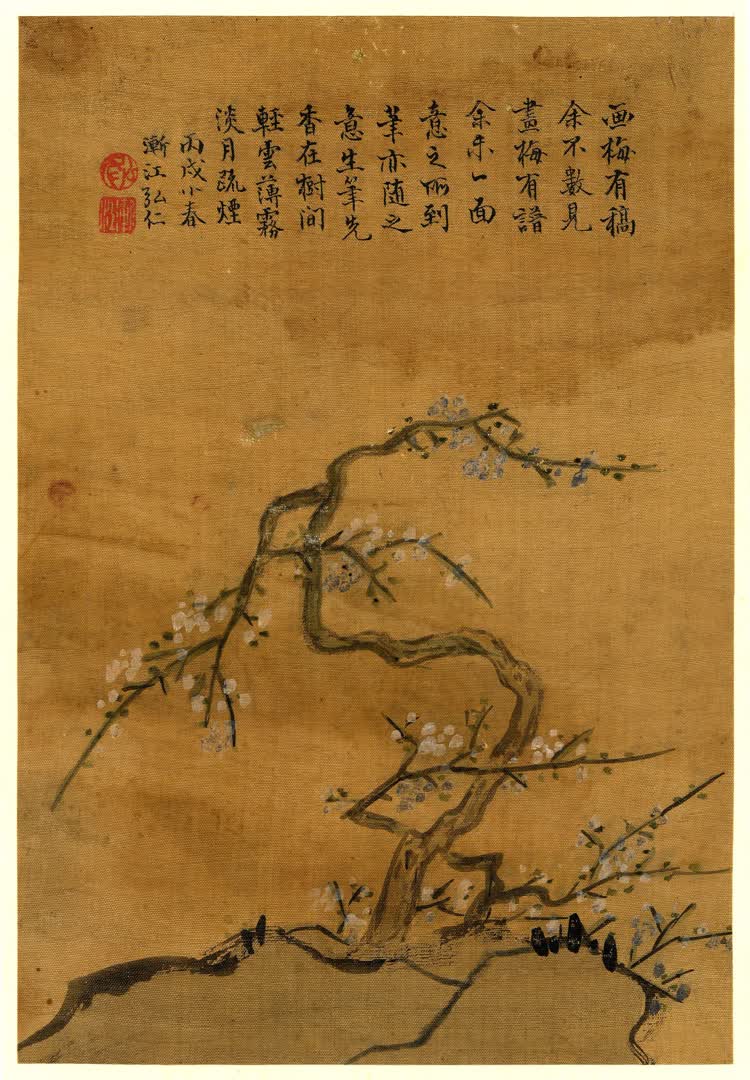 画梅有稿
余不數見
畫梅有譜
余未一面
意之所到
筆亦随之
意生筆先
香在樹间
輕雲薄霧
淡月疏煙
丙戌小春
漸江弘仁